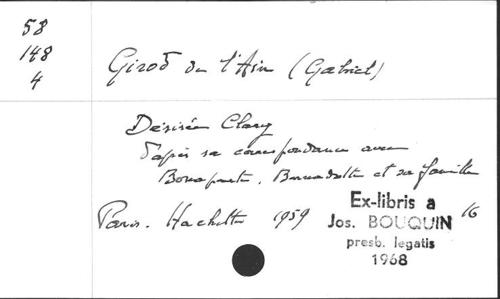 58
148
4
Girod de l'Ain (Gabriel)
Désirée Clary
d'après sa correspondance avec
Bonaparte, Bernadotte et sa famille
Paris. Hachette 1959 16
Ex-libris a
Jos. BOUQUIN
presb. legatis
1968